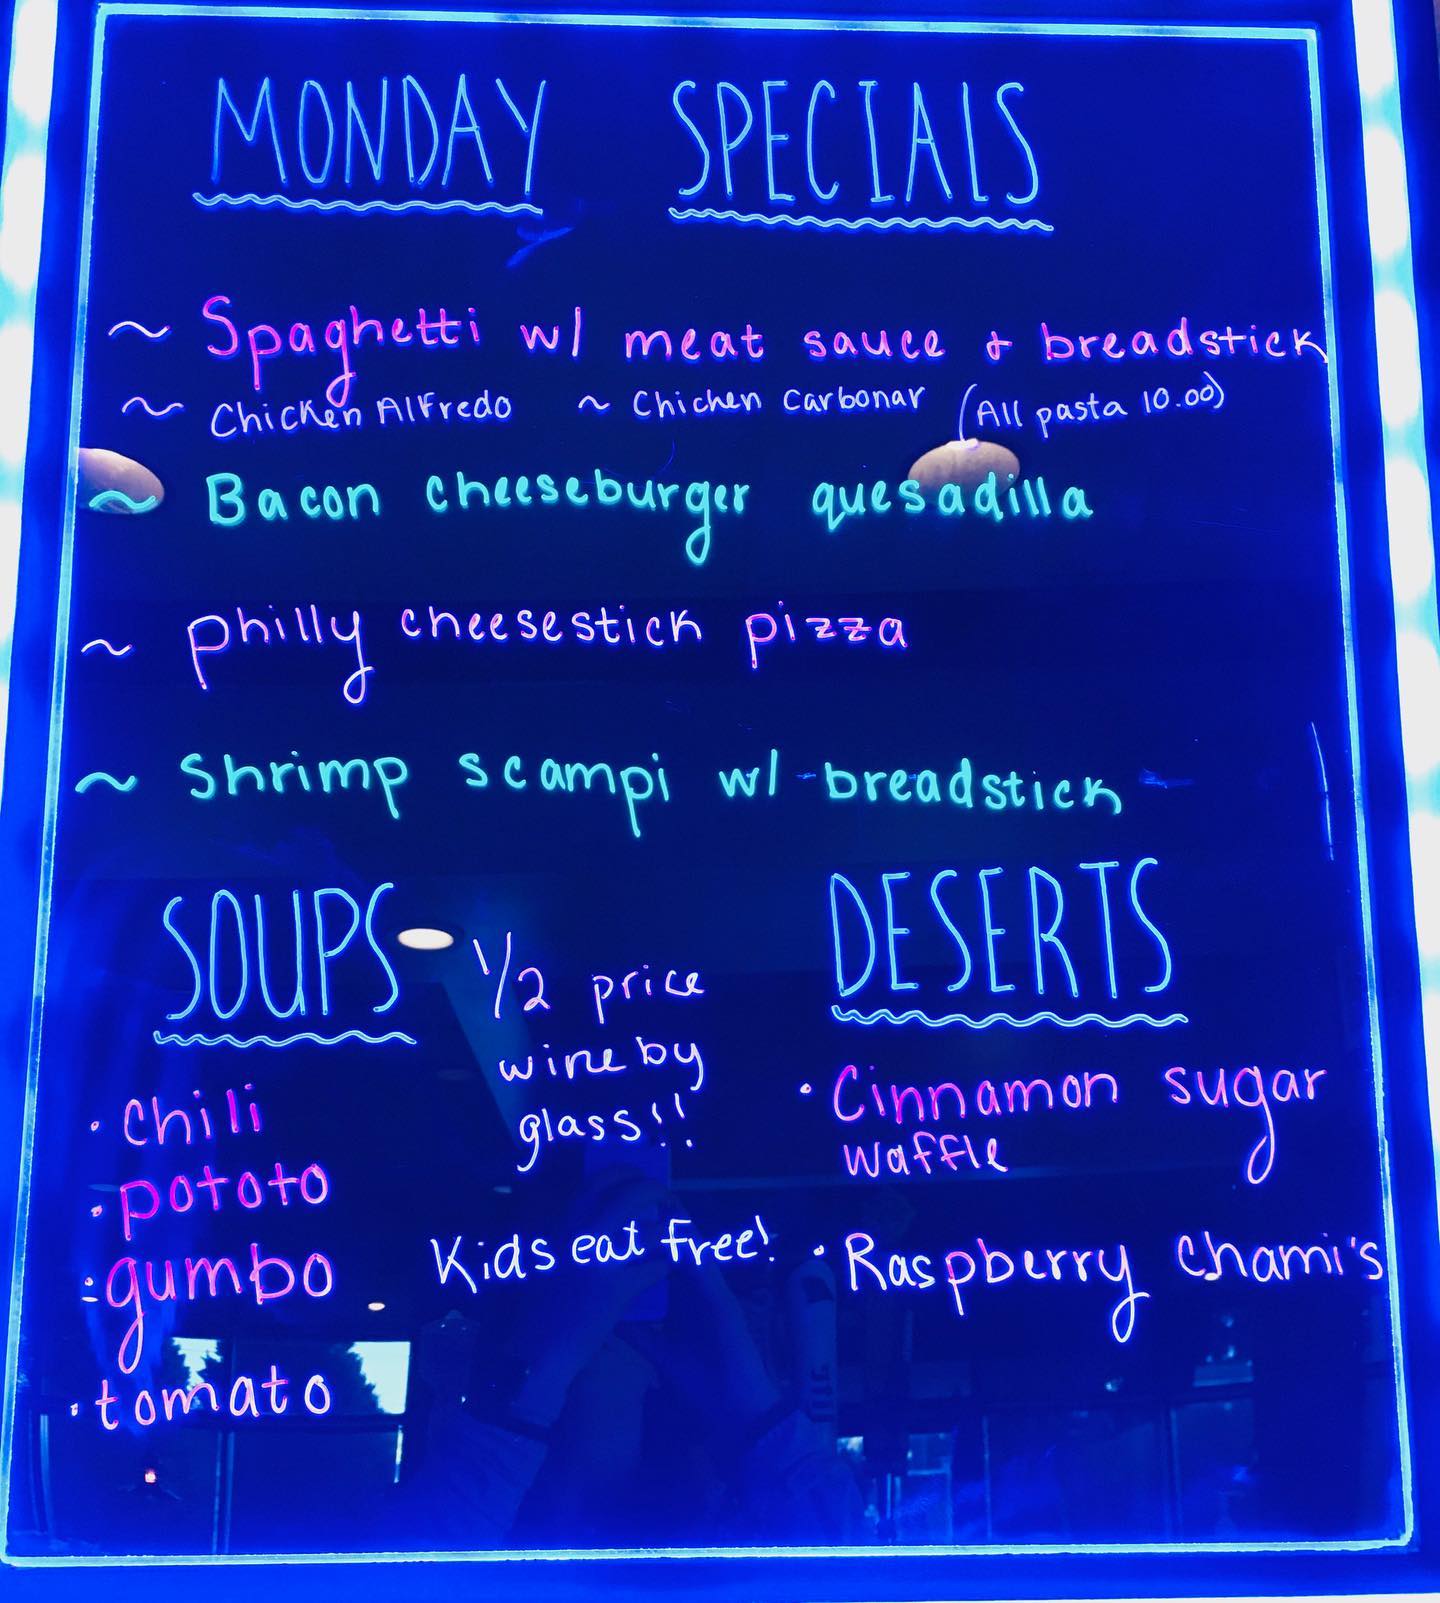 MONDAY SPECIALS
~ Spaghetti w/ meat sauce & breadstick
~ Chicken Alfredo ~ Chicken Carbonar (All pasta 10.00)
~ Bacon cheeseburger quesadilla
~ philly cheesestick pizza
~ Shrimp scampi w/ breadstick
SOUPS
· Chili
· pototo
· gumbo
· tomato
1/2 price
wine by
glass!!
Kids eat free!
DESERTS
· Cinnamon sugar
waffle
· Raspberry Chami's